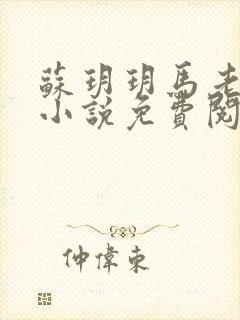 蘇玥玥馬老
小說免費閱
仲偉東